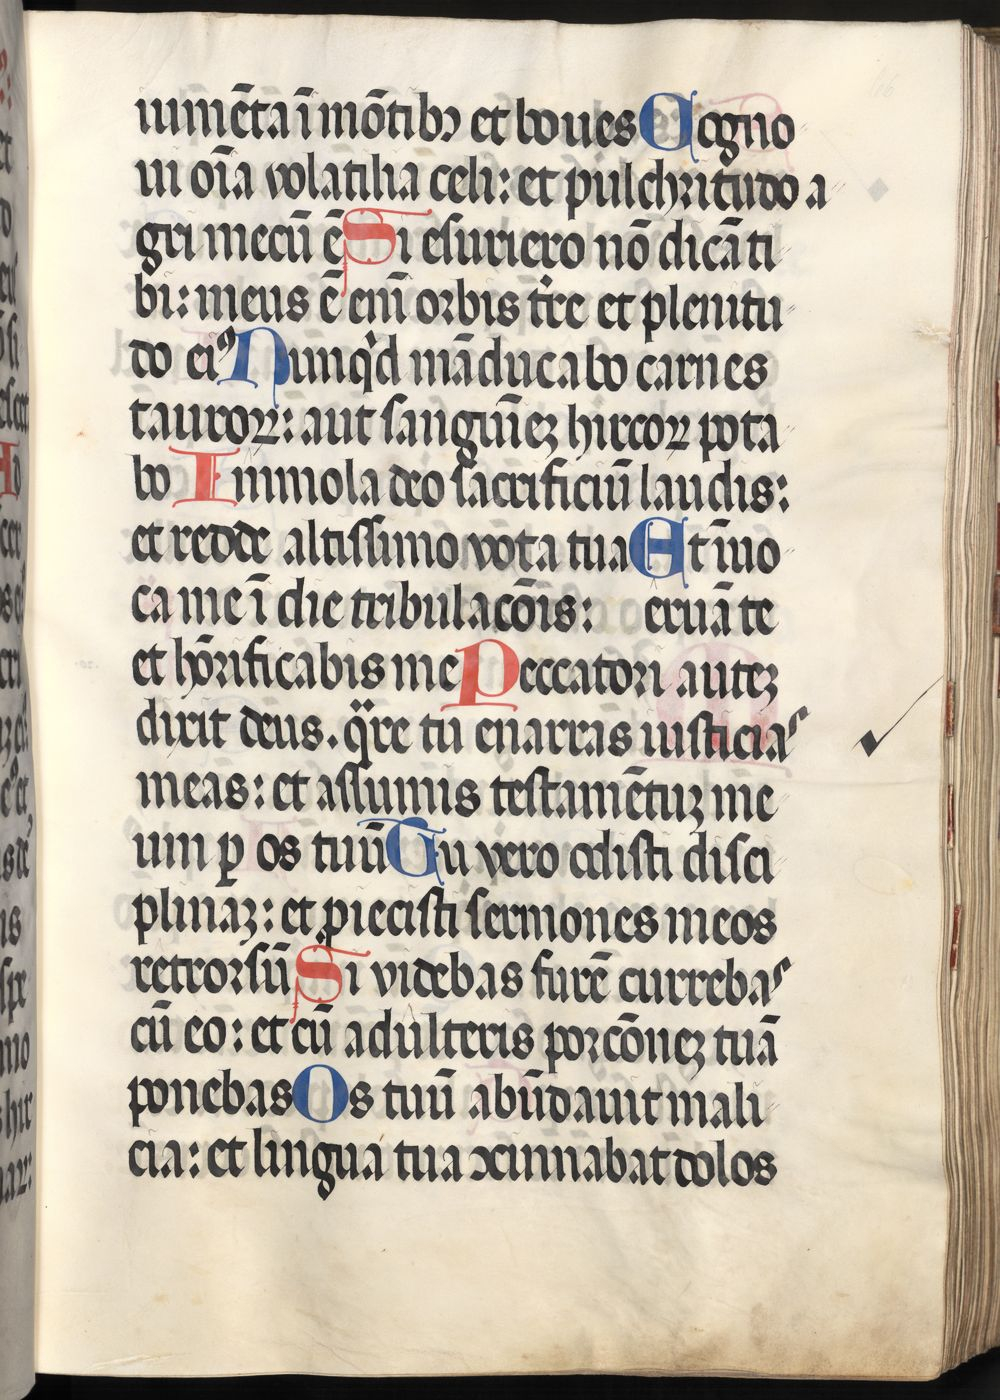 iumēta ī mōtibꝫ et boues Cogno
ui oīa volatilia celi: et pulchritudo a
gri mecū ē Si esuriero nō dicā ti
bi: meus ē enī orbis tr̄e et plenitu
do eiꝰ Nunqͥd māducabo carnes
tauroꝝ: aut sanguīeꝫ hircoꝝ pota
bo Immola deo sacrificiū laudis:
et redde altissimo vota tua Et īuo
ca me ī die tribulacōis: eruā te
et hōrificabis me Peccatori auteꝫ
dixit deus. qᷓre tu enarras iusticias
meas: et assumis testamētuꝫ me
um ꝑ os tuū Tu vero odisti disci
plinaꝫ: et piecisti sermones meos
retrorsū Si videbas furē currebas
cū eo: et cū adulteris porcōneꝫ tuā
ponebas Os tuū abūdauit mali
cia: et lingua tua ↄcinnabat dolos